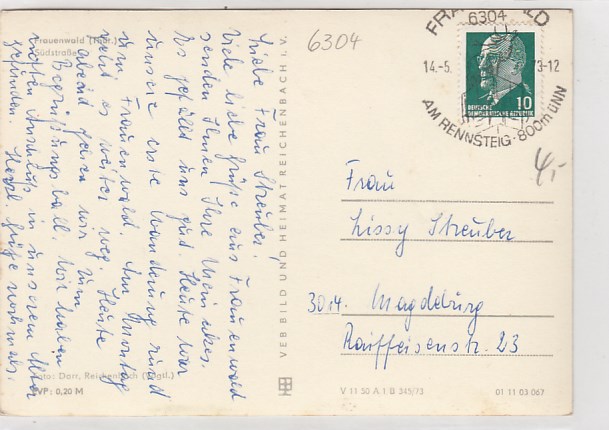 Frauenwald (Thür.)
Südstraße
Liebe Frau Streuber!
Viele liebe Grüße aus Frauenwald
senden Ihnen Ihre
Es gefällt uns gut. Heute war
unsere erste Wanderung rund
um Frauenwald. Am Montag
geht es weiter weg. Heute
abend gehen wir zum
Begrüßungsball. Wir haben
netten Anschluß in unserem Alter
gefunden. Herzl. Grüße nochmals.
Foto: Darr, Reichenbach (Vogtl.)
EVP: 0,20 M
VEB BILD UND HEIMAT REICHENBACH i. V.
6304
6304
14.-5. 73-12
AM RENNSTEIG · 800m ü NN
10
DEUTSCHE
DEMOKRATISCHE REPUBLIK
4,-
Frau
Lissy Streuber
3014. Magdeburg
Raiffeisenstr. 23
V 11 50 A 1 B 345/73
01 11 03 067